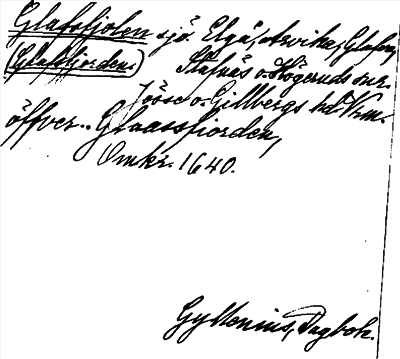 Glafsfjolen sjö. Elgå, Arvika, Glafva,
(Glafsfjorden.) Stafnäs o. Högeruds snr.
Jösse o. Gillbergs hd Vrm.
öffver.. Glaassfiorden,
Omkr. 1640.
Gyllenius, Dagbok.